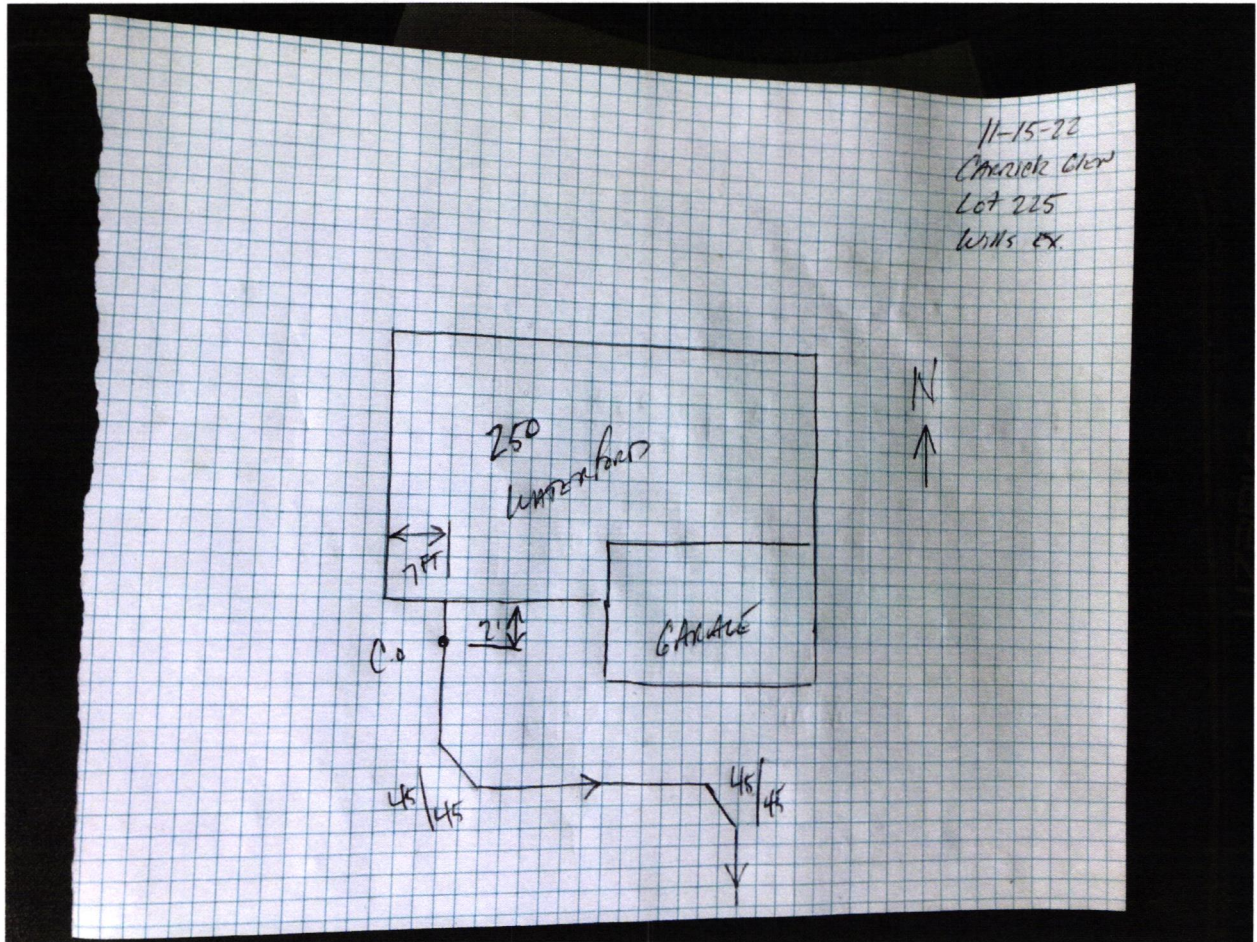 11-15-22
CARRICK GLEN
Lot 225
Wills Ex.
N
250
WATERFORD
7 FT
2'
GARAGE
C.O
45/45
45/45